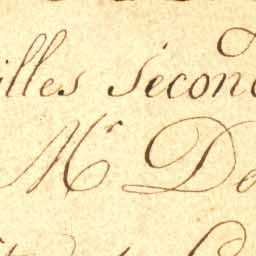 illes Second
Mr De